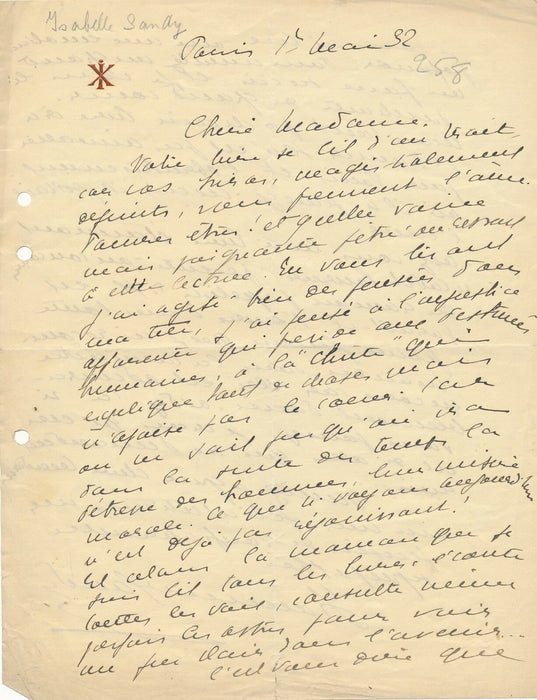 Isabelle Sandy
Paris 1er Mai 32
258
Chère Madame.
Votre livre se lit d'un trait,
car vos héros, magistralement
dépeints, vous prennent l'âme.
Pauvres êtres! et quelle vaine
mais poignante pitié on ressent
à cette lecture. En vous lisant
j'ai agité bien des pensées dans
ma tête, j'ai pensé à l'injustice
apparente qui préside aux destinées
humaines, à la "chute" qui
explique tant de choses mais
n'apaise pas le coeur car
on ne sait jusqu'où ira
dans la suite des temps la
détresse des hommes, leur misère
morale. Ce que ns. voyons aujourd'hui
n'est déjà pas réjouissant!
Et alors la maman que je
suis lit tous les livres, écoute
toutes les voix, consulte même
parfois les astres pour voir
un peu clair dans l'avenir...
C'est vous dire que